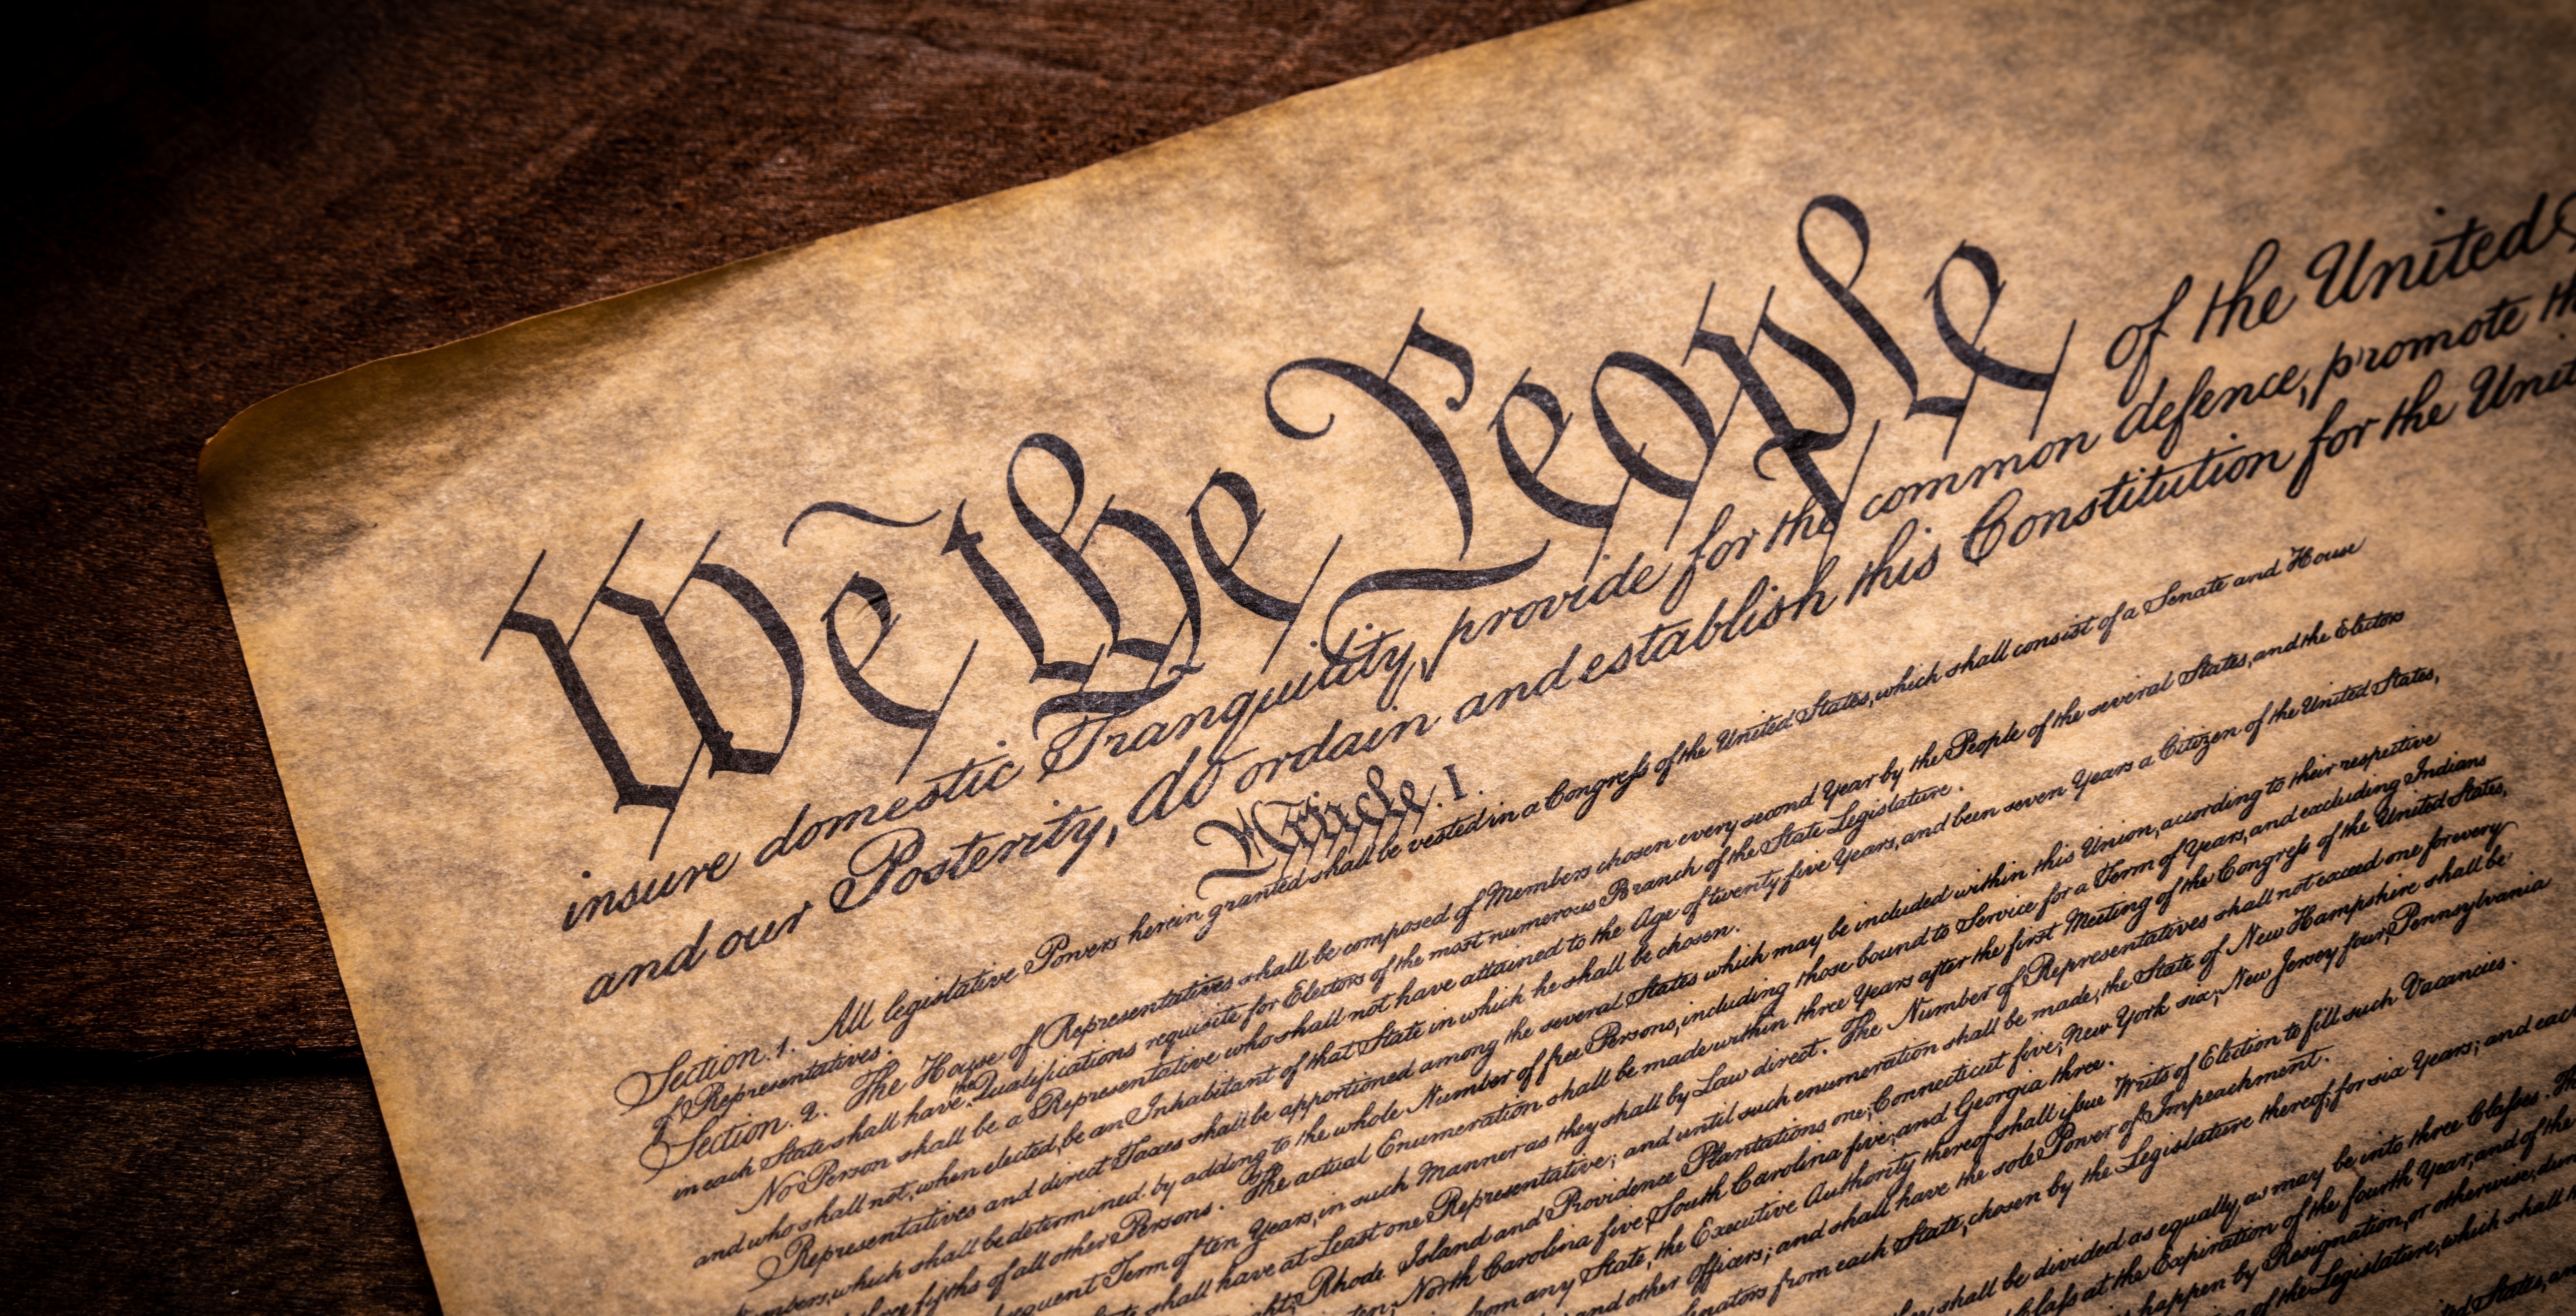 We the People of the United
insure domestic Tranquility, provide for the common defence, promote
and our Posterity, do ordain and establish this Constitution for the
Article. I.
Section. 1. All legislative Powers herein granted shall be vested in a Congress of the United States, which shall consist of a Senate and House
of Representatives.
Section. 2. The House of Representatives shall be composed of Members chosen every second Year by the People of the several States, and the Electors
in each State shall have the Qualifications requisite for Electors of the most numerous Branch of the State Legislature.
No Person shall be a Representative who shall not have attained to the Age of twenty five Years, and been seven Years a Citizen of the United States,
and who shall not, when elected, be an Inhabitant of that State in which he shall be chosen.
Representatives and direct Taxes shall be apportioned among the several States which may be included within this Union, according to their respective
which shall be determined by adding to the whole Number of free Persons, including those bound to Service for a Term of Years, and excluding Indians
of all other Persons. The actual Enumeration shall be made within three Years after the first Meeting of the Congress of the United States,
Term of ten Years, in such Manner as they shall by Law direct. The Number of Representatives shall not exceed one for every
shall have at Least one Representative; and until such enumeration shall be made, the State of New Hampshire shall be
Rhode Island and Providence Plantations one, Connecticut five, New York six, New Jersey four, Pennsylvania
North Carolina five, South Carolina five, and Georgia three.
from any State, the Executive Authority thereof shall issue Writs of Election to fill such Vacancies.
and other Officers; and shall have the sole Power of Impeachment.
from each State, chosen by the Legislature thereof, for six Years; and each
shall be divided as equally as may be into three Classes.
at the Expiration of the fourth Year, and of the
happen by Resignation, or otherwise,
of the Legislature, which shall